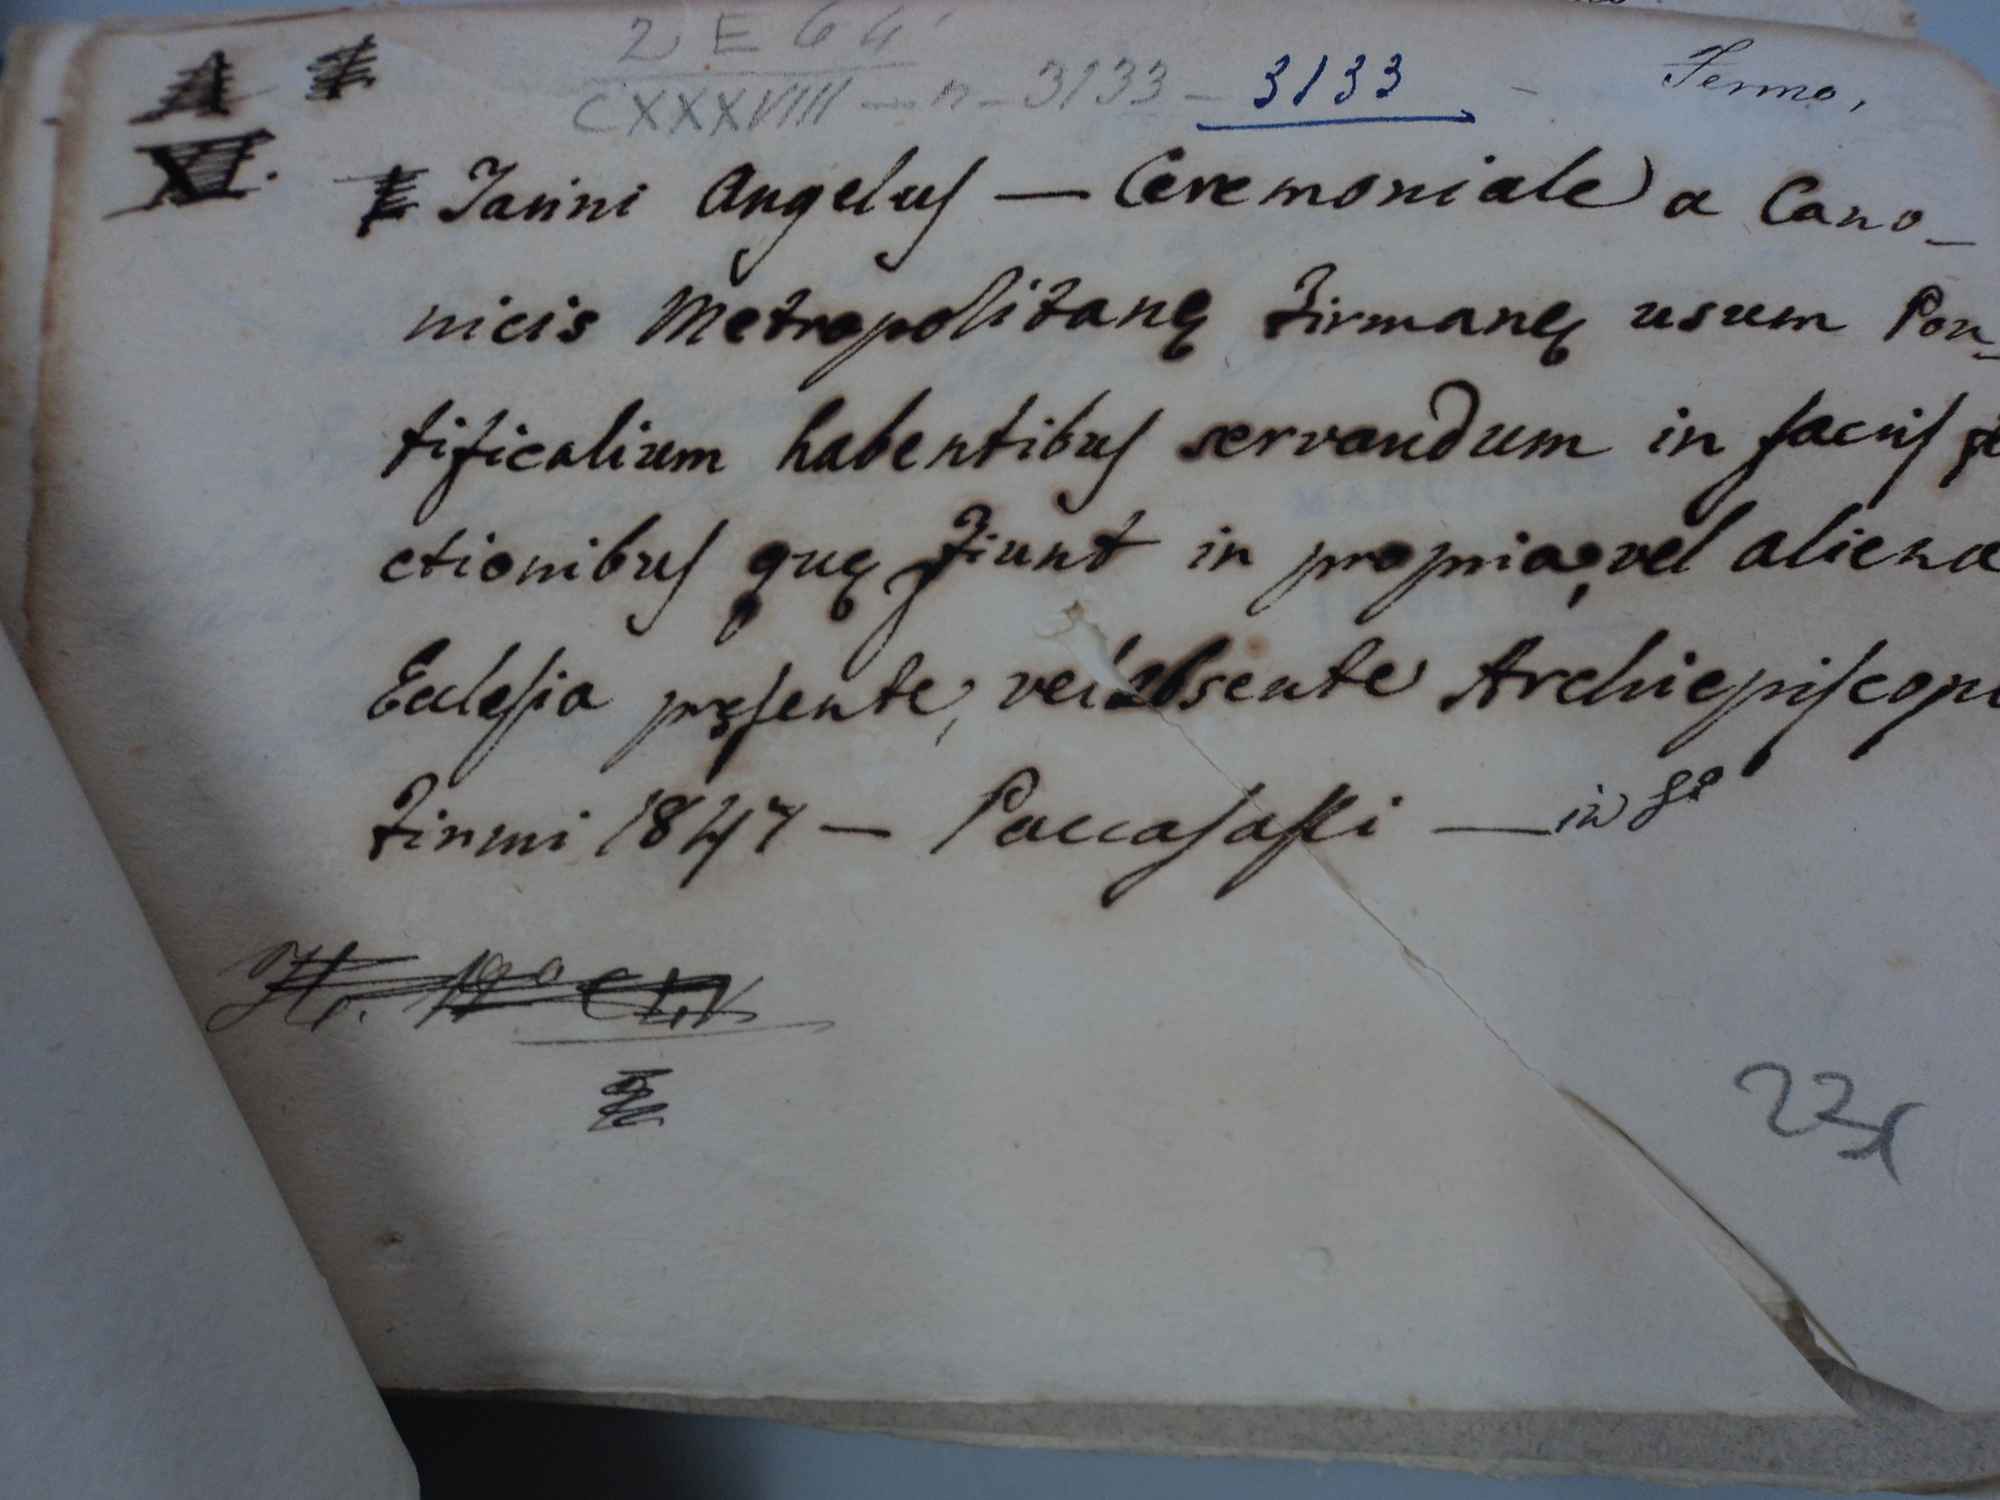 2 E 64
CXXXVIII — n — 3133 — 3133 - Fermo,
XI.
Janini Angelus — Ceremoniale a Cano_
nicis Metropolitanę Firmanę usum Pon_
tificalium habentibus servandum in sacris
ctionibus quę fiunt in propria, vel aliena
Ecclesia pręsente, vel absente Archiepiscopo
Firmi 1847 — Paccasassi — in 8º